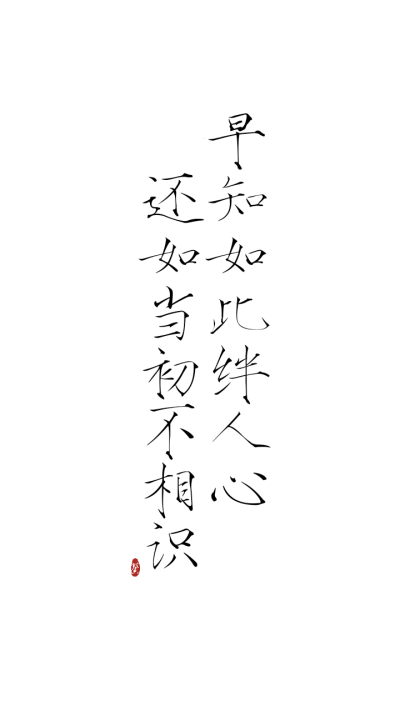 早知如此绊人心
还如当初不相识